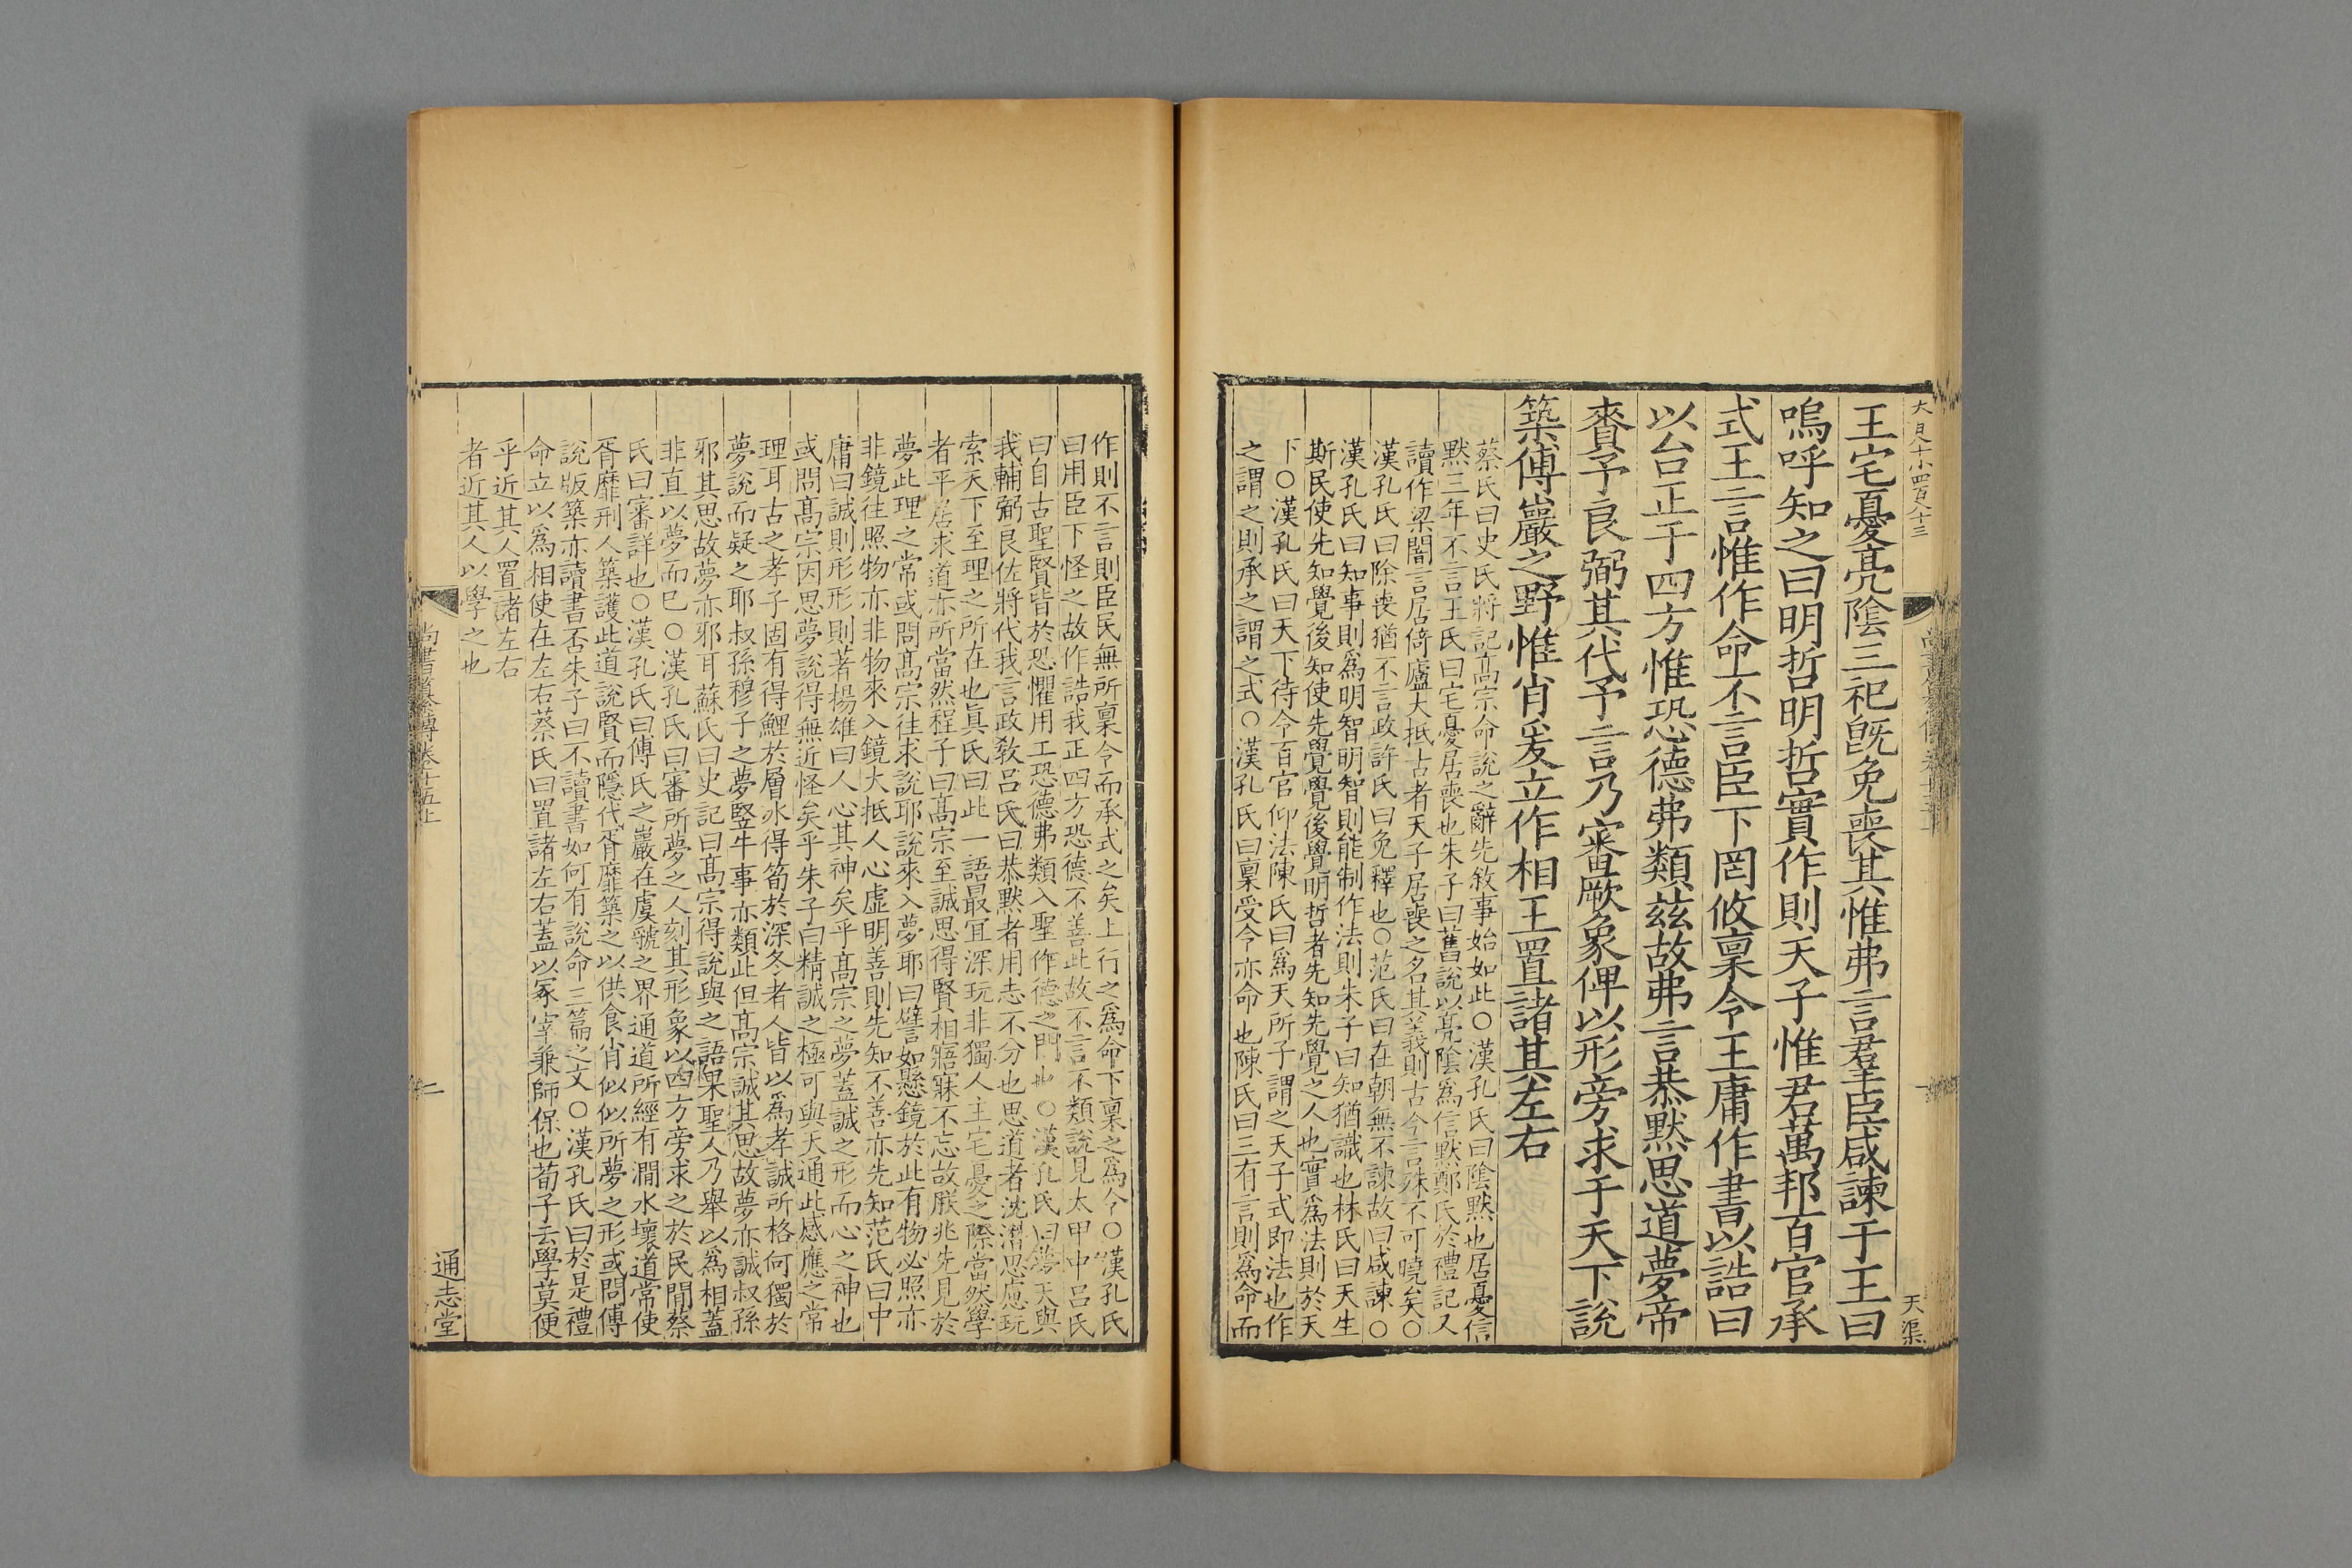 大一百八十小四百八十三
天渠
王宅憂亮陰三祀旣免喪其惟弗言羣臣咸諫于王曰
嗚呼知之曰明哲明哲實作則天子惟君萬邦百官承
式王言惟作命不言臣下罔攸稟令王庸作書以誥曰
以台正于四方惟恐德弗類茲故弗言恭默思道夢帝
賚予良弼其代予言乃審厥象俾以形旁求于天下說
築傅巖之野惟肖爰立作相王置諸其左右
蔡氏曰史氏將記髙宗命說之辭先敘事始如此○漢孔氏曰陰默也居憂信
默三年不言王氏曰宅憂居喪也朱子曰舊說以亮陰爲信默鄭氏於禮記又
讀作梁闇言居倚廬大抵古者天子居喪之名其義則古今言殊不可曉矣○
漢孔氏曰除喪猶不言政許氏曰免釋也○范氏曰在朝無不諫故曰咸諫○
漢孔氏曰知事則爲明智明智則能制作法則朱子曰知猶識也林氏曰天生
斯民使先知覺後知使先覺覺後覺明哲者先知先覺之人也實爲法則於天
下○漢孔氏曰天下待令百官仰法陳氏曰爲天所子謂之天子式即法也作
之謂之則承之謂之式○漢孔氏曰稟受令亦命也陳氏曰三有言則爲命而
作則不言則臣民無所稟令而承式之矣上行之爲命下稟之爲令○漢孔氏
曰用臣下怪之故作誥我正四方恐德不善此故不言不類說見太甲中呂氏
曰自古聖賢皆於恐懼用工恐德弗類入聖作德之門也○漢孔氏曰夢天與
我輔弼良佐將代我言政敎呂氏曰恭默者用志不分也思道者沈潛思慮玩
索天下至理之所在也眞氏曰此一語最宜深玩非獨人主宅憂之際當然學
者平居求道亦所當然程子曰髙宗至誠思得賢相寤寐不忘故朕兆先見於
夢此理之常或問髙宗往求說耶說來入夢耶曰譬如懸鏡於此有物必照亦
非鏡往照物亦非物來入鏡大抵人心虛明善則先知不善亦先知范氏曰中
庸曰誠則形形則著揚雄曰人心其神矣乎髙宗之夢蓋誠之形而心之神也
或問髙宗因思夢說得無近怪矣乎朱子曰精誠之極可與天通此感應之常
理耳古之孝子固有得鯉於層冰得筍於深冬者人皆以爲孝誠所格何獨於
夢說而疑之耶叔孫穆子之夢豎牛事亦類此但髙宗誠其思故夢亦誠叔孫
邪其思故夢亦邪耳蘇氏曰史記曰髙宗得說與之語果聖人乃舉以爲相蓋
非直以夢而已○漢孔氏曰審所夢之人刻其形象以四方旁求之於民間蔡
氏曰審詳也○漢孔氏曰傅氏之巖在虞虢之界通道所經有澗水壞道常使
胥靡刑人築護此道說賢而隱代胥靡築之以供食肖似似所夢之形或問傅
說版築亦讀書否朱子曰不讀書如何有說命三篇之文○漢孔氏曰於是禮
命立以爲相使在左右蔡氏曰置諸左右蓋以冢宰兼師保也荀子云學莫便
乎近其人置諸左右
者近其人以學之也
尚書纂傳卷十五上
二
通志堂